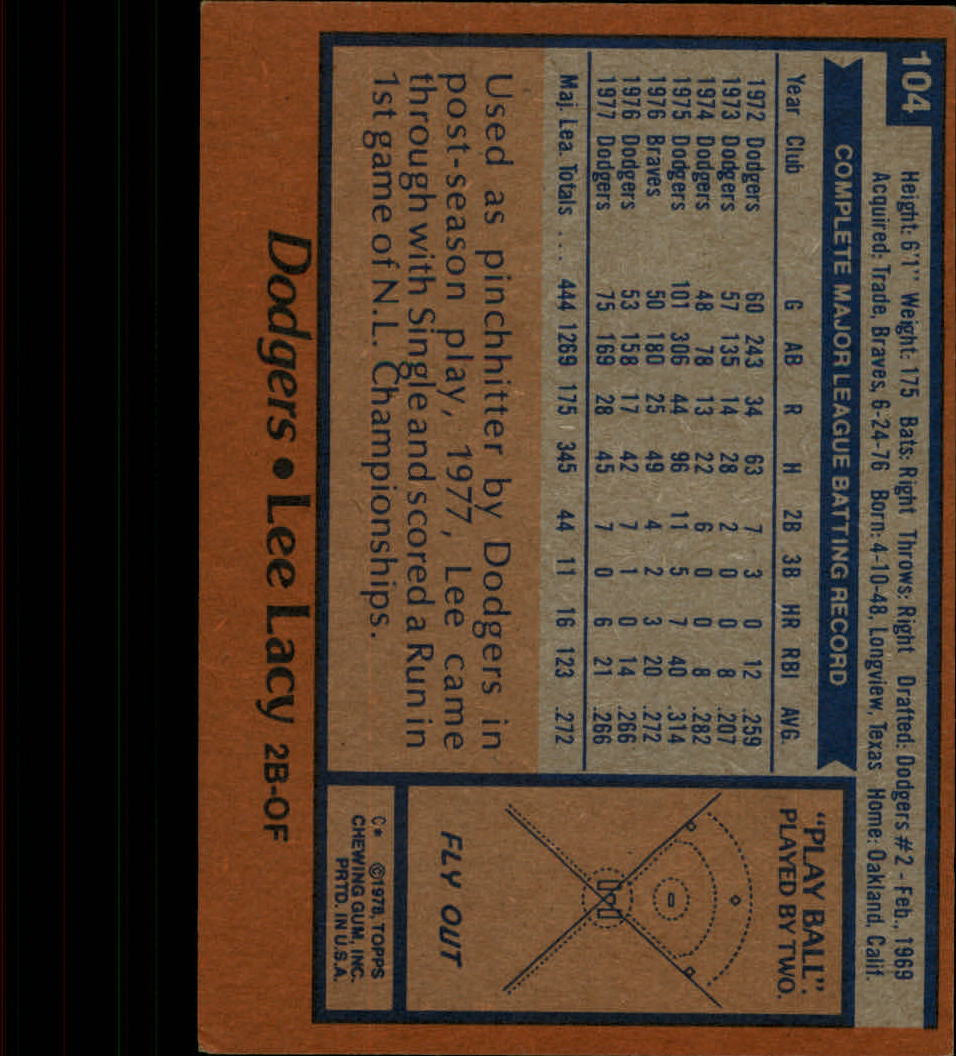 104
Height: 6'1" Weight: 175 Bats: Right Throws: Right Drafted: Dodgers #2 - Feb., 1969
Acquired: Trade, Braves, 6-24-76 Born: 4-10-48, Longview, Texas Home: Oakland, Calif.
COMPLETE MAJOR LEAGUE BATTING RECORD
Year Club G AB R H 2B 3B HR RBI AVG.
1972 Dodgers 60 243 34 63 7 3 0 12 .259
1973 Dodgers 57 135 14 28 2 0 0 8 .207
1974 Dodgers 48 78 13 22 6 0 0 8 .282
1975 Dodgers 101 306 44 96 11 5 7 40 .314
1976 Braves 50 180 25 49 4 2 3 20 .272
1976 Dodgers 53 158 17 42 7 1 0 14 .266
1977 Dodgers 75 169 28 45 7 0 6 21 .266
Maj. Lea. Totals .... 444 1269 175 345 44 11 16 123 .272
Used as pinchhitter by Dodgers in
post-season play, 1977, Lee came
through with Single and scored a Run in
1st game of N.L. Championships.
"PLAY BALL":
PLAYED BY TWO.
FLY OUT
C* ©1978, TOPPS
CHEWING GUM, INC.
PRTD. IN U.S.A.
Dodgers • Lee Lacy 2B-OF